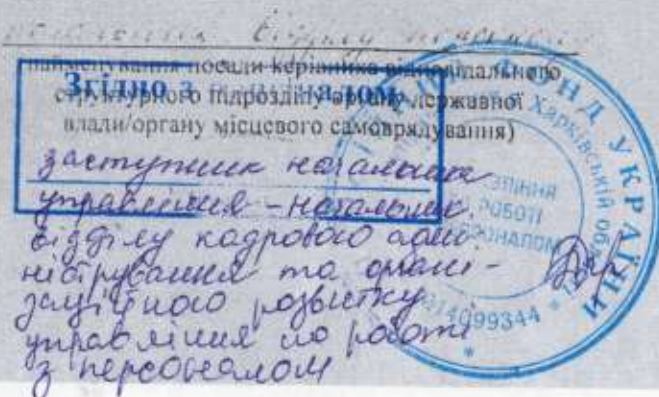 найменування посади керівника відповідального
структурного підрозділу органу державної
влади/органу місцевого самоврядування)
Згідно з оригіналом
заступник начальника
управління - начальник
відділу кадрового адмі-
ністрування та органі-
заційного розвитку
управління по роботі
з персоналом
ФОНД УКРАЇНИ
Харківській об
РОБОТІ
14099344 *